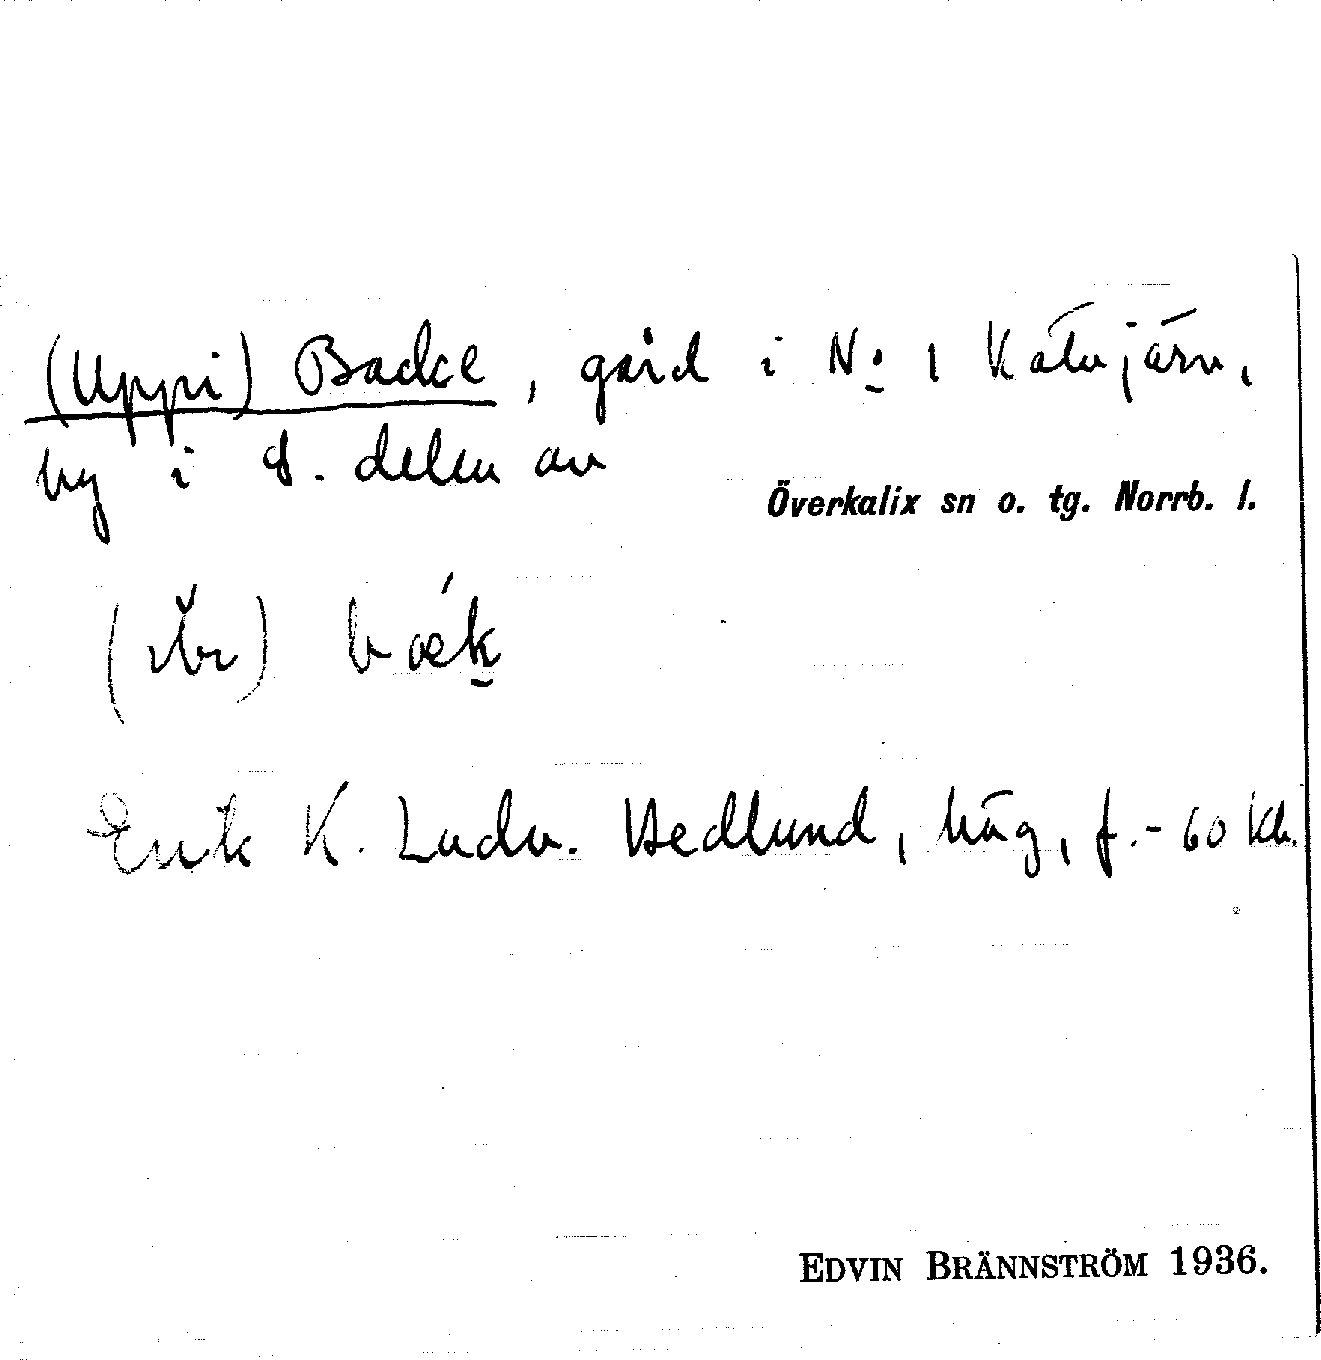 (Uppi) Backe, gård i No 1 Kälvjärv,
by i S. delen av
Överkalix sn o. tg. Norrb. l.
bæḱ
Erik K. Ludv. Hedlund, häg, f. -60 Kb.
EDVIN BRÄNNSTRÖM 1936.